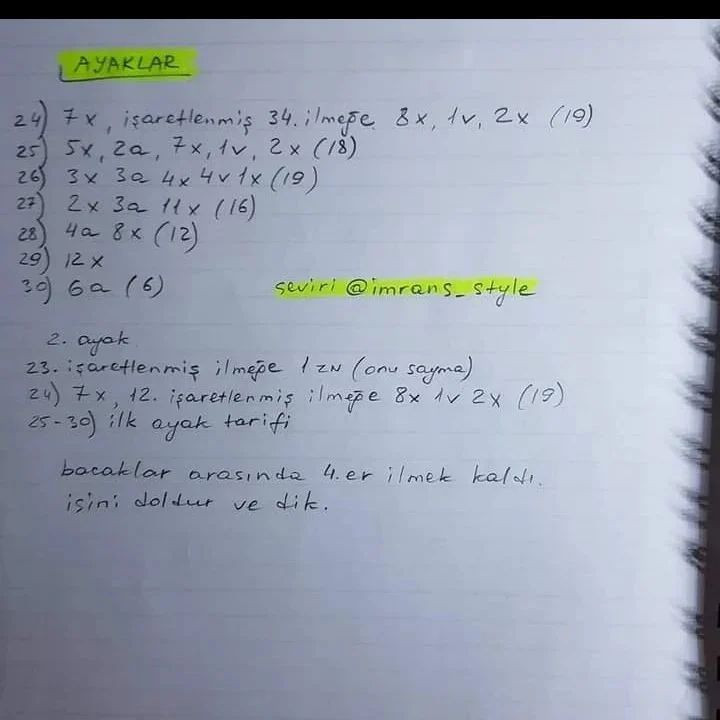 AYAKLAR
24) 7x, işaretlenmiş 34. ilmeğe 8x, 1v, 2x (19)
25) 5x, 2a, 7x, 1v, 2x (18)
26) 3x 3a 4x 4v 1x (19)
27) 2x 3a 11x (16)
28) 4a 8x (12)
29) 12x
30) 6a (6)
seviri @imrans_style
2. ayak
23. işaretlenmiş ilmeğe 1 ZN (onu sayma)
24) 7x, 12. işaretlenmiş ilmeğe 8x 1v 2x (19)
25-30) ilk ayak tarifi
bacaklar arasında 4.er ilmek kaldı.
işini doldur ve dik.